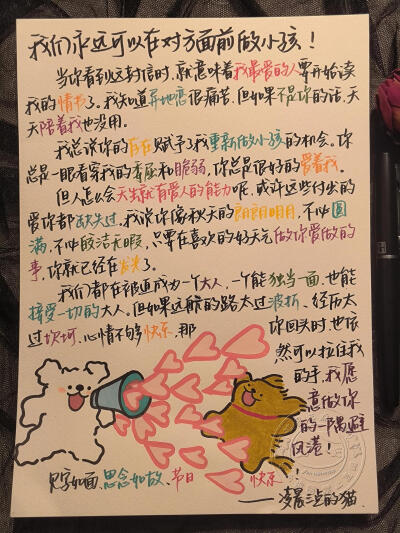 我们永远可以在对方面前做小孩！
当你看到这封信时，就意味着我最爱的人要开始读
我的情书了。我知道异地恋很痛苦，但如果不是你的话，天
天陪着我也没用。
我总说你的存在赋予了我重新做小孩的机会。你
总是一眼看穿我的委屈和脆弱，你总是很好的爱着我。
但人怎么会天生就有爱人的能力呢，或许这些付出的
爱你都缺失过。我说你像秋天的朗朗明月，不必圆
满，不必皎洁无暇，只要在喜欢的好天气做你爱做的
事，你就已经在发光了。
我们都在被迫成为一个大人，一个能独当一面，也能
接受一切的大人。但如果远航的路太过波折、经历太
过坎坷，心情不够快乐，那
你回头时也依
然可以拉住我
的手，我愿
意做你
的一隅避
风港！
见字如面，思念如故，节日
快乐！
——凌晨三点的猫